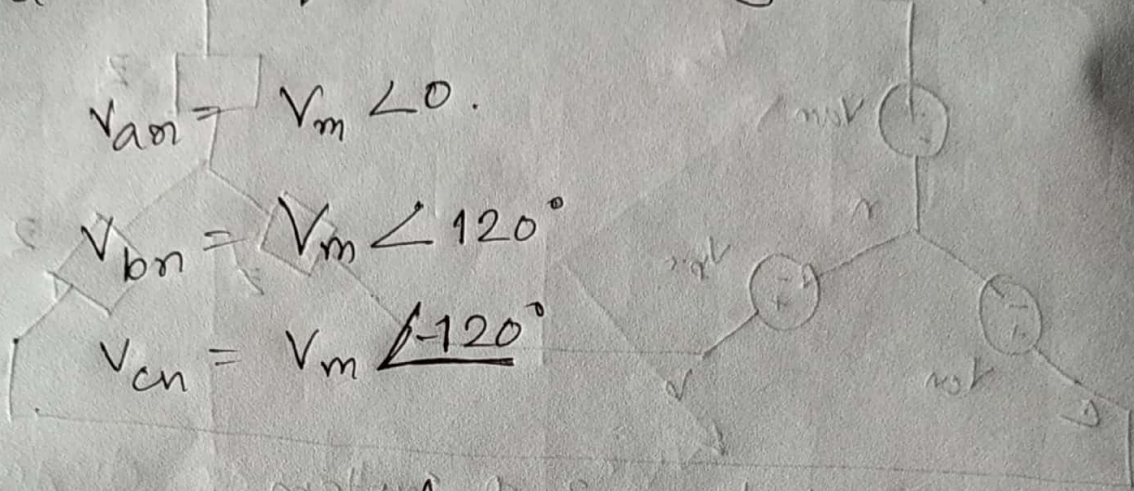 Van = Vm ∠0.
Vbn = Vm ∠120°
Vcn = Vm ∠-120°